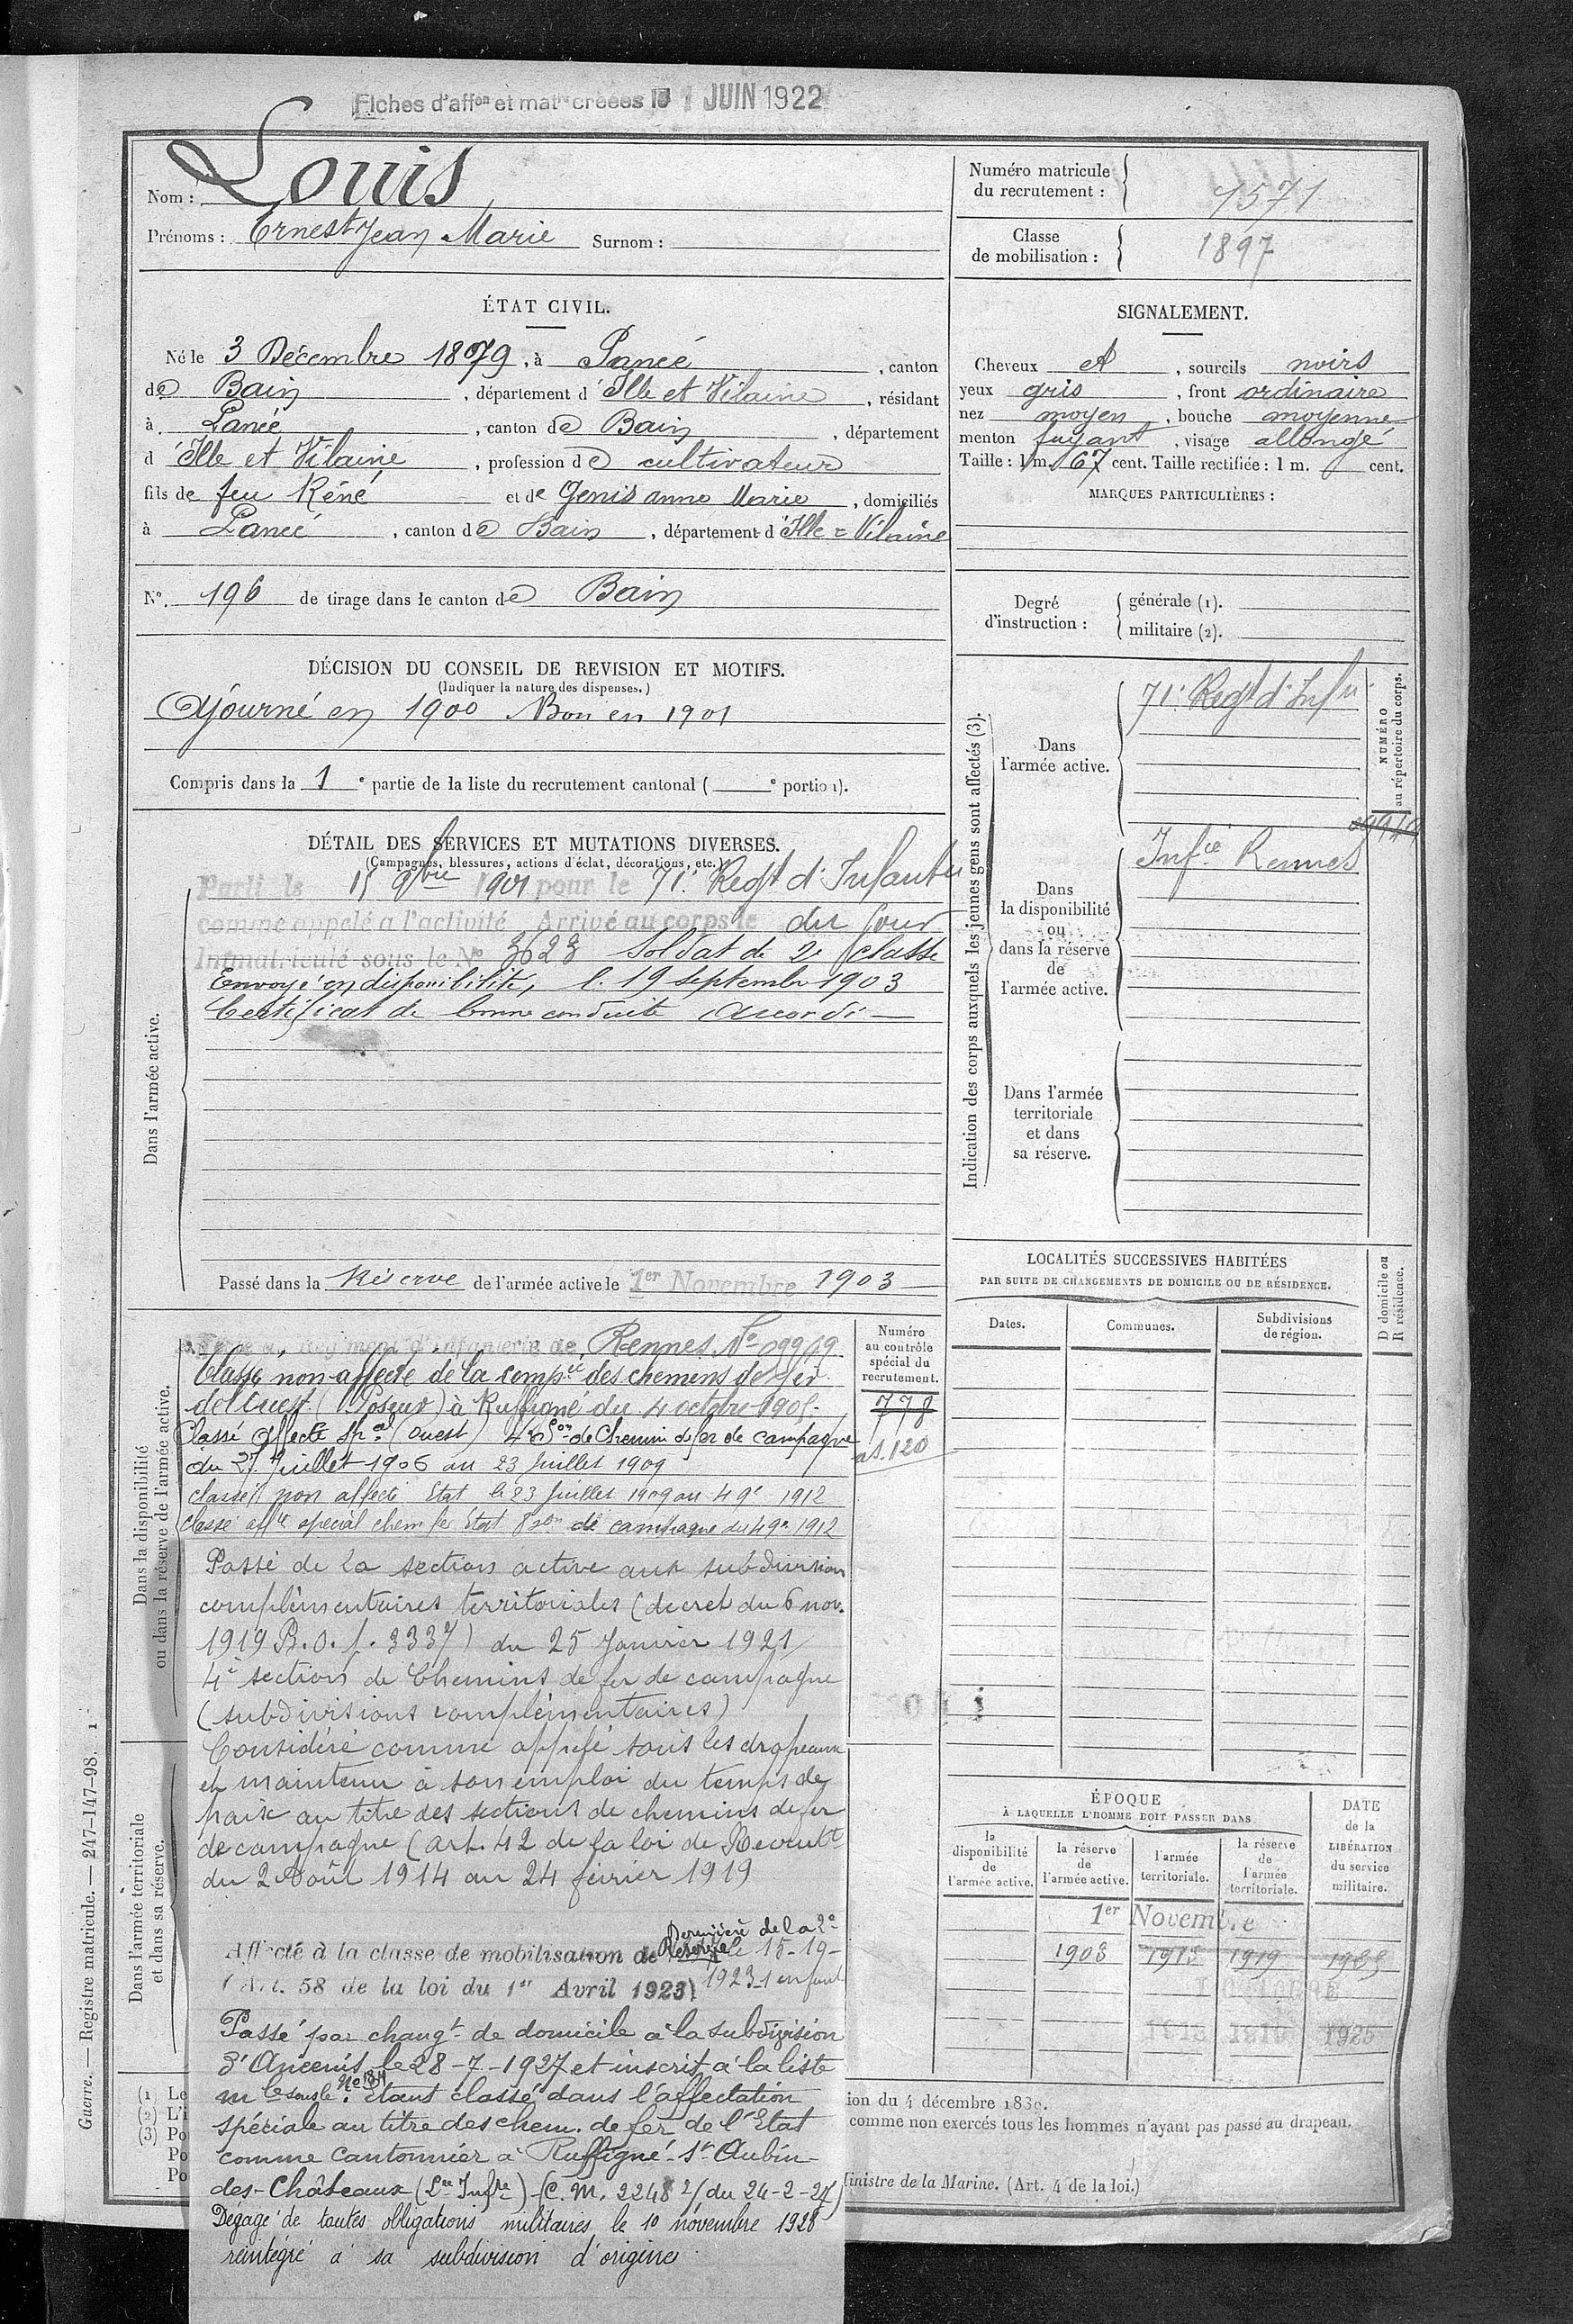 Fiches d'affon et matle créées le 1 JUIN 1922
Nom : Louis
Prénoms : Ernest Jean Marie Surnom :
Numéro matricule du recrutement : 1571
Classe de mobilisation : 1897
ÉTAT CIVIL.
Né le 3 Décembre 1879, à Pancé, canton
de Bain, département d'Ille et Vilaine, résidant
à Pancé, canton de Bain, département
d'Ille et Vilaine, profession de cultivateur
fils de feu Réné et de Genis anne Marie, domiciliés
à Pancé, canton de Bain, département d'Ille & Vilaine
N° 196 de tirage dans le canton de Bain
SIGNALEMENT.
Cheveux et, sourcils noirs
yeux gris, front ordinaire
nez moyen, bouche moyenne
menton fuyant, visage allongé
Taille : 1 m. 67 cent. Taille rectifiée : 1 m. cent.
MARQUES PARTICULIÈRES :
Degré d'instruction : générale (1).
militaire (2).
DÉCISION DU CONSEIL DE REVISION ET MOTIFS.
(Indiquer la nature des dispenses.)
Ajourné en 1900 Bon en 1901
Compris dans la 1e partie de la liste du recrutement cantonal ( e portion).
DÉTAIL DES SERVICES ET MUTATIONS DIVERSES.
(Campagnes, blessures, actions d'éclat, décorations, etc.)
Dans l'armée active.
Parti le 15 9bre 1901 pour le 71e Regt d'Infanterie
comme appelé a l'activité Arrivé au corps le dit jour
Immatriculé sous le N° 3623 Soldat de 2e classe
Envoyé en disponibilité, le 19 septembre 1903
Certificat de bonne conduite Accordé
Passé dans la Réserve de l'armée active le 1er Novembre 1903
Indication des corps auxquels les jeunes gens sont affectés (3).
NUMÉRO au répertoire du corps.
Dans l'armée active.
71e Regt d'Infie
09949
Dans la disponibilité ou dans la réserve de l'armée active.
Infie Rennes
Dans l'armée territoriale et dans sa réserve.
LOCALITÉS SUCCESSIVES HABITÉES
PAR SUITE DE CHANGEMENTS DE DOMICILE OU DE RÉSIDENCE.
D domicile ou R résidence.
Dates. Communes. Subdivisions de région.
Dans la disponibilité ou dans la réserve de l'armée active.
Régiment d'Infanterie de Rennes. N° 09949
Classé non affecté de la compie des chemins de fer
de l'Ouest (Poseur) à Ruffigné du 4 octobre 1905
Classé affecté spal (ouest) 4e Son de Chemin de fer de campagne
du 27 Juillet 1906 au 23 Juillet 1909
classé non affecté Etat le 23 Juillet 1909 au 4 9e 1912
classé affté spécial chem fer Etat 8 son de campagne du 4 9e 1912
Numéro au contrôle spécial du recrutement.
778
as. 120
Passé de la section active aux subdivisions
complémentaires territoriales (décret du 6 nov.
1919 B.O. p. 3337) du 25 Janvier 1921
4e section de Chemins de fer de campagne
(subdivisions complémentaires)
Considéré comme appelé sous les drapeaux
et maintenu à son emploi du temps de
paix au titre des sections de chemins de fer
de campagne (art. 42 de la loi de Recrutt
du 2 Août 1914 au 24 février 1919
Affecté à la classe de mobilisation de Dernière de la 2e Réserve le 15-19-
(Art. 58 de la loi du 1er Avril 1923) 1923 1 enfant
Passé par changt de domicile à la subdivision
d'Ancenis le 28-7-1927 et inscrit à la liste
mle sous le N° 184 étant classé dans l'affectation
spéciale au titre des chem. de fer de l'Etat
comme cantonnier à Ruffigné-St Aubin-
des-Châteaux (Lre Infre) (C.M. 2248 2/ du 24-2-27)
Dégagé de toutes obligations militaires le 10 novembre 1928
réintégré à sa subdivision d'origine
Dans l'armée territoriale et dans sa réserve.
ÉPOQUE
À LAQUELLE L'HOMME DOIT PASSER DANS
la disponibilité de l'armée active.
la réserve de l'armée active.
l'armée territoriale.
la réserve de l'armée territoriale.
DATE de la LIBÉRATION du service militaire.
1er Novembre
1903 1913 1919 1925
1925
(1) Le
(2) L'i
(3) Po
Po
Po
ion du 4 décembre 1889.
comme non exercés tous les hommes n'ayant pas passé au drapeau.
Ministre de la Marine. (Art. 4 de la loi.)
Guerre. — Registre matricule. — 247-147-98. 1